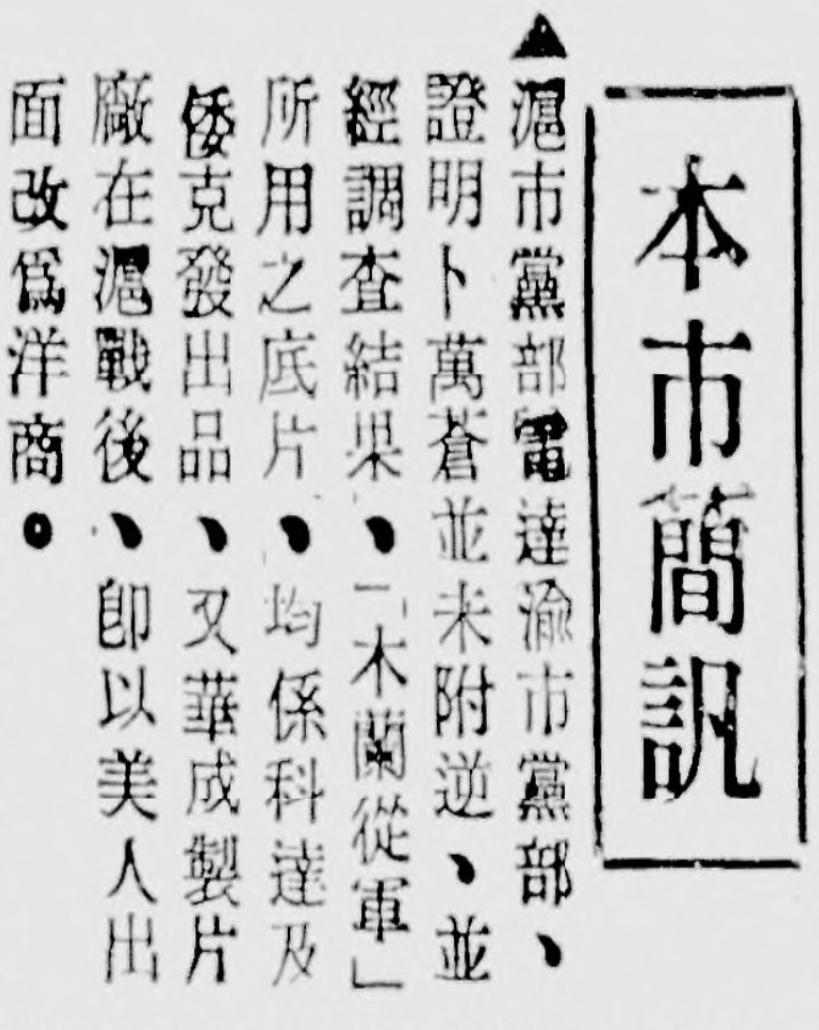 本市簡訊
▲滬市黨部電達渝市黨部、
證明卜萬蒼並未附逆、並
經調查結果、「木蘭從軍」
所用之底片、均係科達及
倭克發出品、又華成製片
廠在滬戰後、卽以美人出
面改爲洋商。